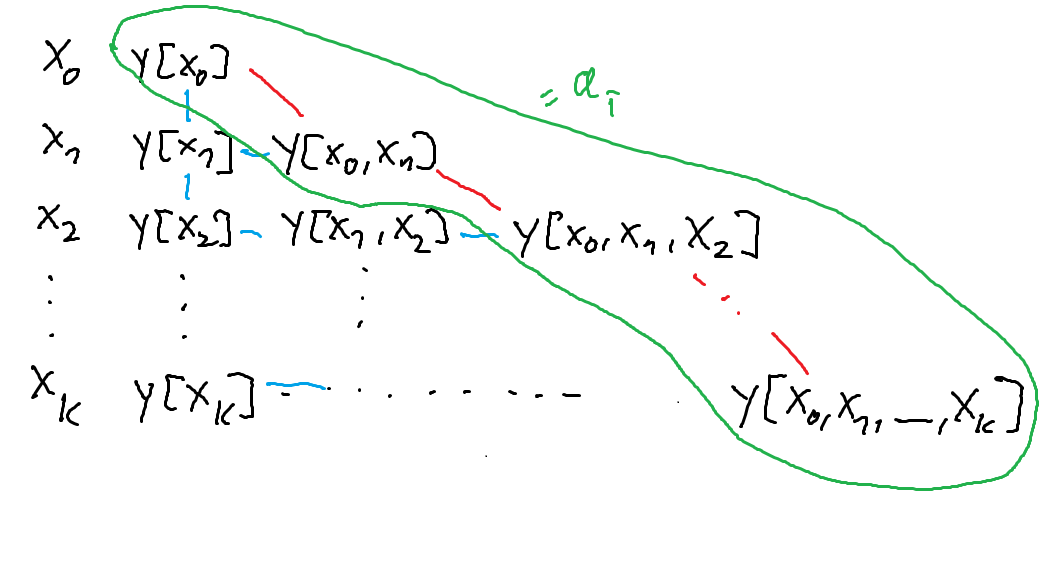 x₀ y[x₀] = αᵢ
x₁ y[x₁] y[x₀, x₁]
x₂ y[x₂] y[x₁, x₂] y[x₀, x₁, x₂]
xₖ y[xₖ] y[x₀, x₁, —, xₖ]